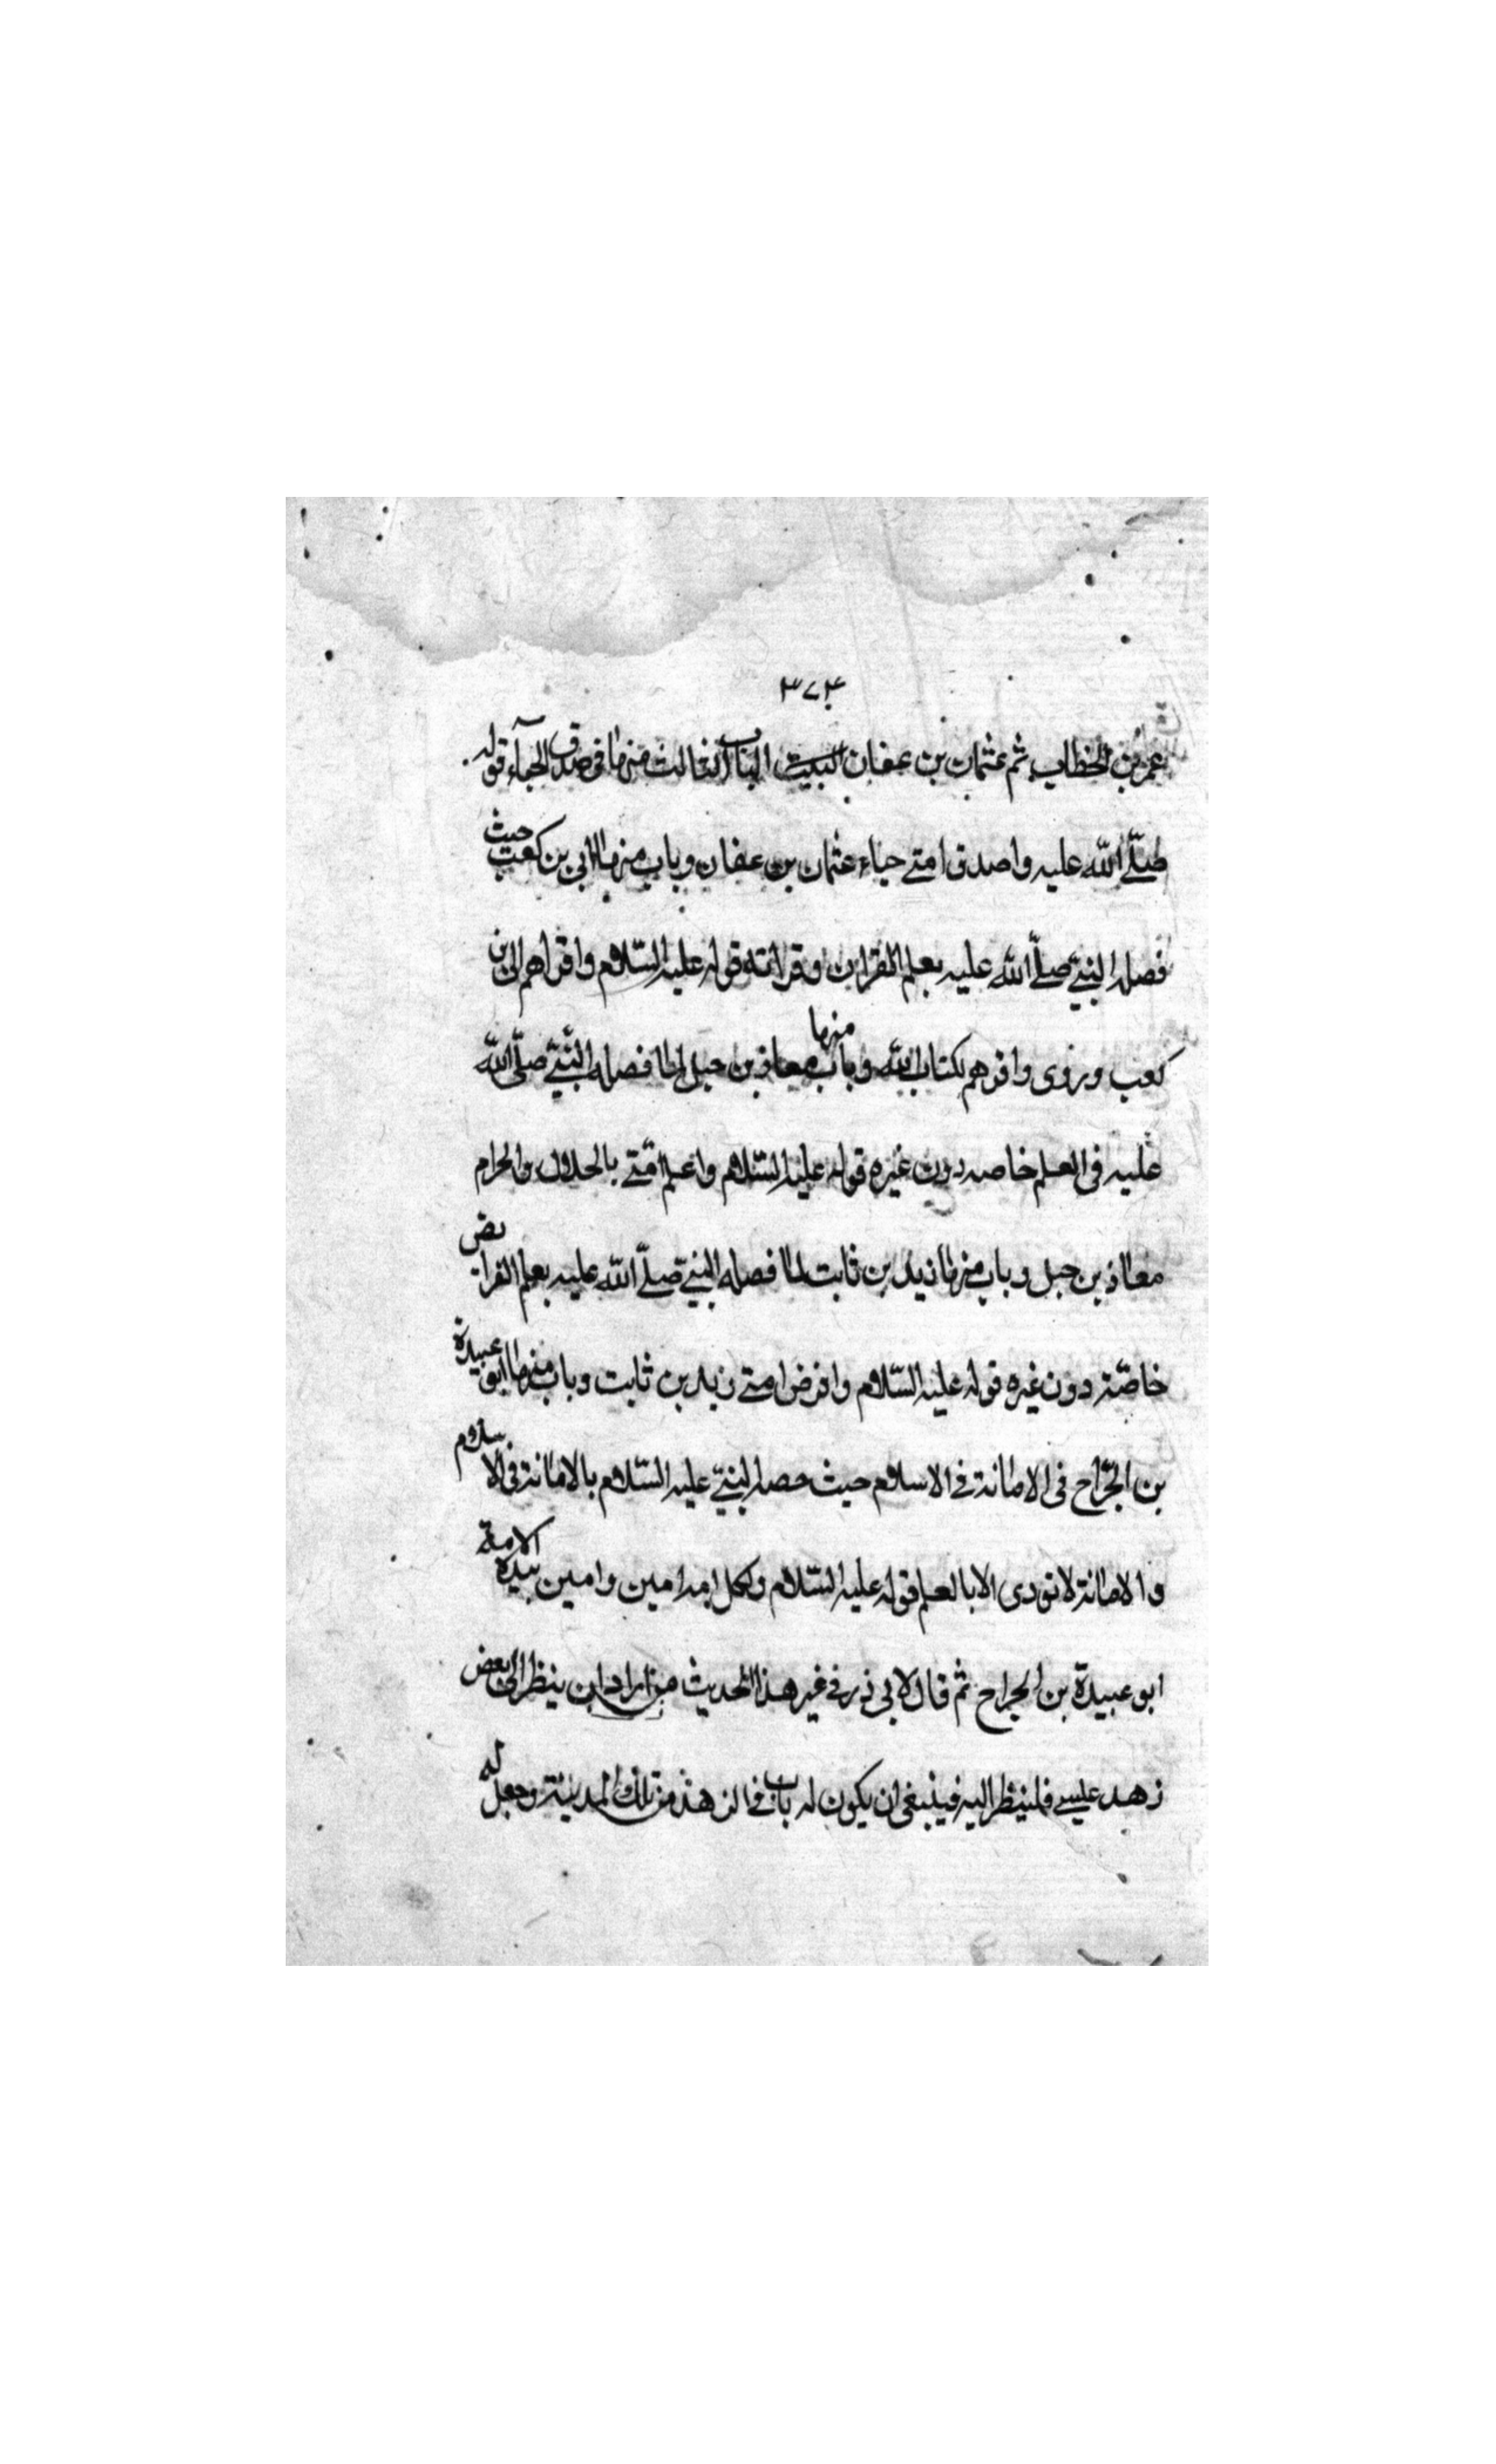 ٣٧٤
عمر بن الخطاب ثم عثمان بن عفان الباب الثالث منها فى صدق الحيآء قوله
صلّے الله عليه واصدق امتے حياء عثمان بن عفان وباب منها ابى بن كعب حيث
فصله النبيّ صلّے الله عليه بعلم القران وقراته قوله عليه السّلام واقراهم ابى بن
كعب وروى واقرهم لكتاب الله وباب منها معاذ بن جبل لما فصله النبيّ صلّى الله
عليه فى العلم خاصه دون غيره قوله عليه السّلام واعلم امّتے بالحلال والحرام
معاذ بن جبل وباب منها زيد بن ثابت لما فصله النبيّ صلّے الله عليه بعلم الفرايض
خاصّة دون غيره قوله عليه السّلام وافرض امتے زيد بن ثابت وباب منها ابو عبيدة
بن الجرّاح فى الامانة فے الاسلام حيث حصه النبيّ عليه السّلام بالامانة فى الاسلام
والامانة لا تودى الا بالعلم قوله عليه السّلام ولكل امة امين وامين الامة
ابو عبيدة بن الجراح ثم قال لابى ذر فے غير هذا الحديث من اراد ان ينظر الى بعض
زهد عيسے فلينظر اليه فينبغى ان يكون له باب فے الزهد من تلك المدينة وجعل له